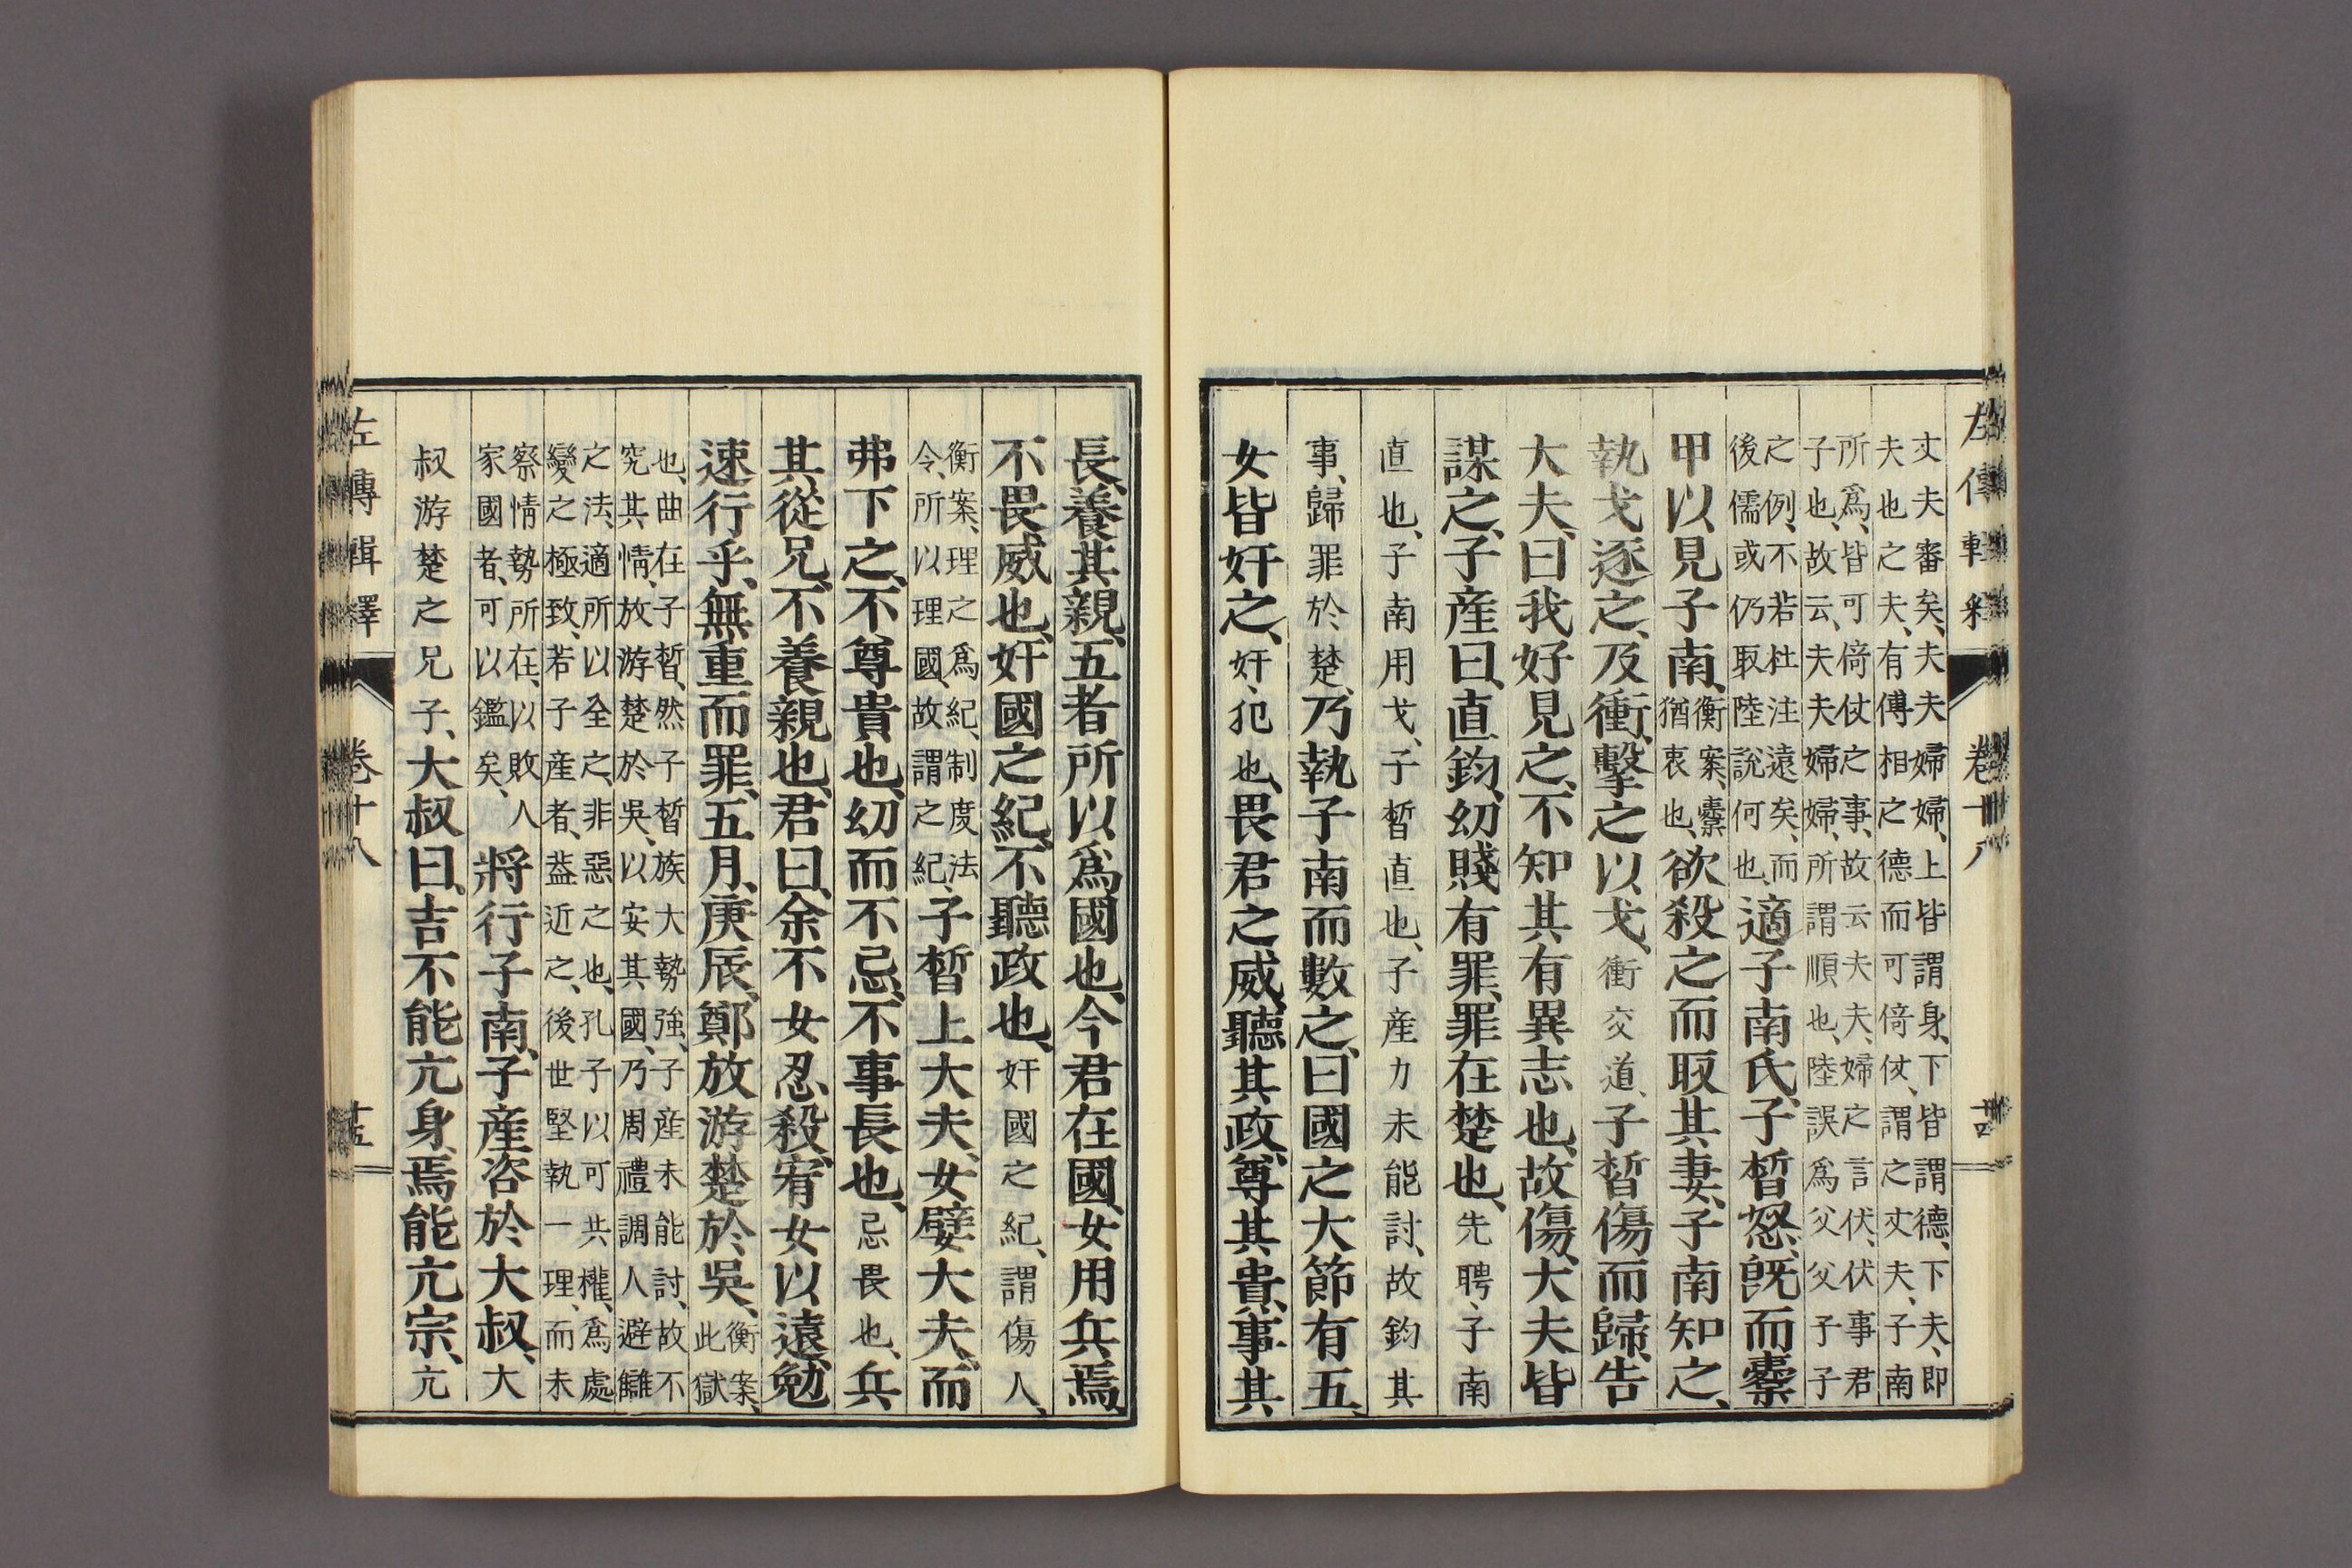 左傳輯釋 卷十八 十四
丈夫審矣、夫夫婦婦、上皆謂身、下皆謂德、下夫、即
夫也之夫、有傅相之德而可倚仗、謂之丈夫、子南
所爲、皆可倚仗之事、故云夫夫、婦之言伏、伏事君
子也、故云、夫夫婦婦、所謂順也、陸誤爲父父子子
之例、不若杜注遠矣、而
後儒或仍取陸說何也、適子南氏、子晳怒、旣而櫜
甲以見子南、衡案、櫜猶衷也、欲殺之而取其妻、子南知之、
執戈逐之、及衝、擊之以戈、衝交道、子晳傷而歸、告
大夫、曰我好見之、不知其有異志也、故傷、大夫皆
謀之、子産曰、直鈞、幼賤有罪、罪在楚也、先聘、子南
直也、子南用戈、子晳直也、子産力未能討、故鈞其
事、歸罪於楚、乃執子南而數之、曰國之大節有五、
女皆奸之、奸、犯也、畏君之威、聽其政、尊其貴、事其
長、養其親、五者所以爲國也、今君在國、女用兵焉、
不畏威也、奸國之紀、不聽政也、奸國之紀、謂傷人、
衡案、理之爲紀、制度法
令、所以理國、故謂之紀、子晳上大夫、女嬖大夫、而
弗下之、不尊貴也、幼而不忌、不事長也、忌畏也、兵
其從兄、不養親也、君曰、余不女忍殺、宥女以遠、勉
速行乎、無重而罪、五月、庚辰、鄭放游楚於吳、衡案、此獄
也、曲在子晳、然子晳族大勢強、子産未能討、故不
究其情、放游楚於吳、以安其國、乃周禮調人避讎
之法、適所以全之、非惡之也、孔子以可共權、爲處
變之極致、若子産者、蓋近之、後世堅執一理、而未
察情勢所在、以敗人
家國者、可以鑑矣、將行子南、子産咨於大叔、大
叔游楚之兄子、大叔曰、吉不能亢身、焉能亢宗、亢
左傳輯釋 卷十八 十五